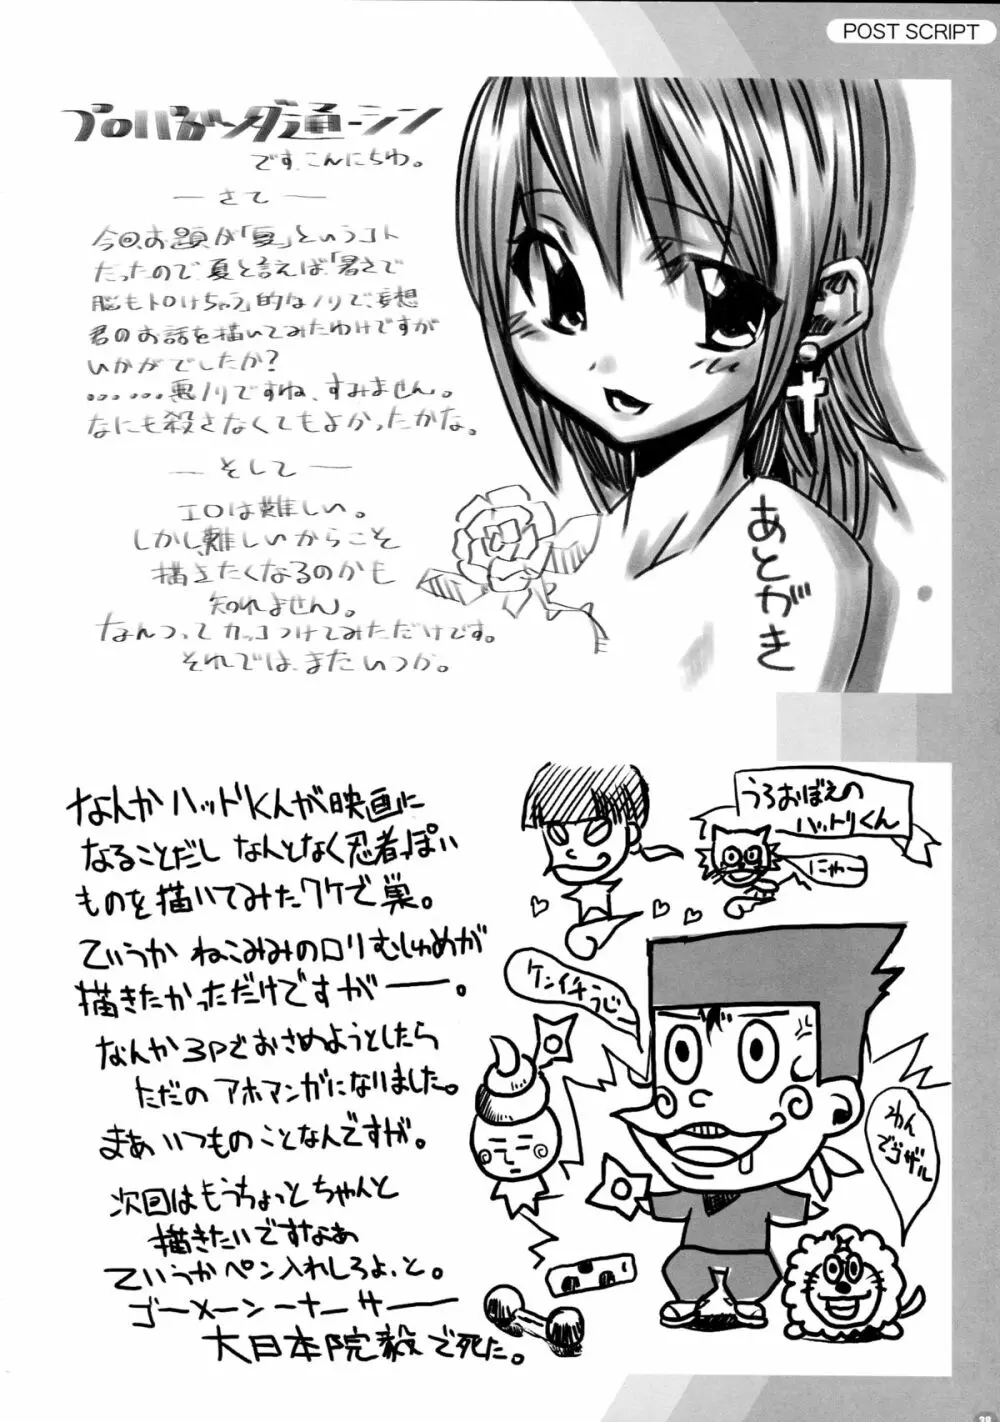 POST SCRIPT
プロパガンダ通ーシン
です、こんにちわ。
— さて —
今回、お題が「夏」というコト
だったので、夏と言えば、「暑さで
脳もトロけちゃう」的なノリで、妄想
君のお話を描いてみたわけですが
いかがでしたか?
……悪ノリですね、すみません。
なにも殺さなくてもよかったかな。
— そして —
エロは難しい。
しかし、難しいからこそ
描きたくなるのかも
知れません。
なんつってカッコつけてみただけです。
それでは、またいつか。
あとがき
なんかハットリくんが映画に
なることだし なんとなく忍者ぽい
ものを描いてみたワケで巣。
ていうか ねこみみのロリむしゅめが
描きたかっただけですがーー。
なんか3Pでおさめようとしたら
ただのアホマンガになりました。
まぁいつものことなんですが。
次回はもうちょっとちゃんと
描きたいですなぁ
ていうかペン入れしろよ、と。
ゴーメーンーナーサーー
大日本院毅で死た。
うろおぼえの
ハットリくん
にゃー
ケンイチうじー
わん
でゴザル